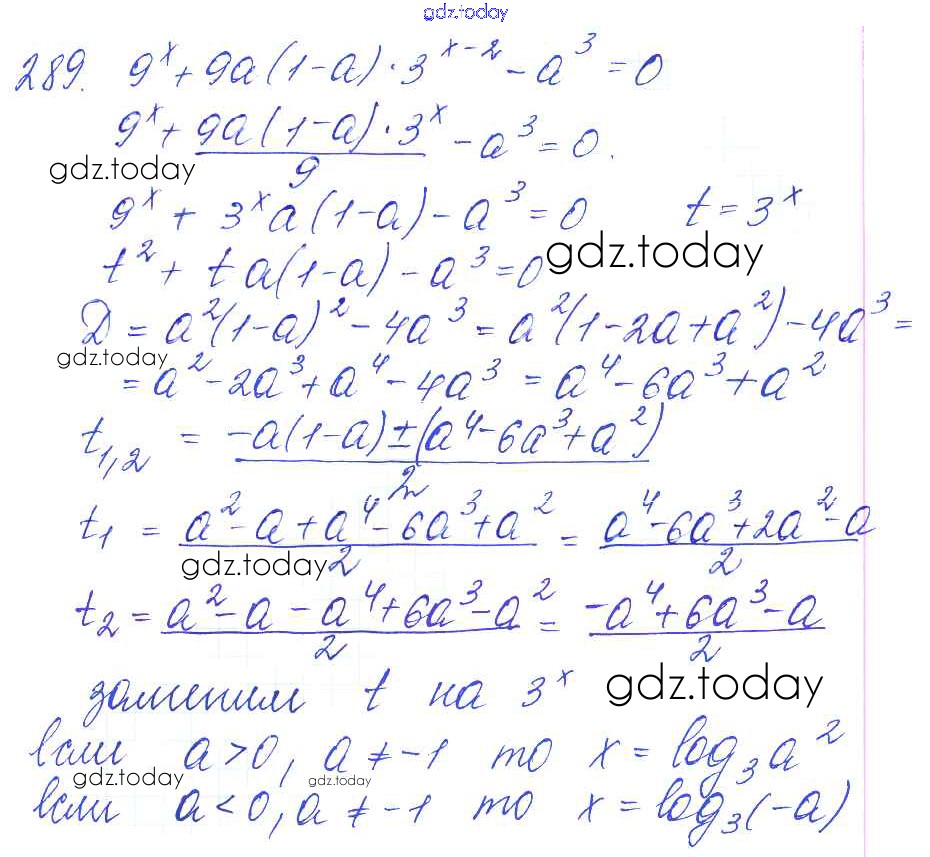 gdz.today
289. 9^x + 9a(1-a)·3^{x-2} - a^3 = 0
9^x + 9a(1-a)·3^x / 9 - a^3 = 0.
gdz.today
9^x + 3^x a(1-a) - a^3 = 0 t = 3^x
t^2 + ta(1-a) - a^3 = 0 gdz.today
Д = a^2(1-a)^2 - 4a^3 = a^2(1-2a+a^2) - 4a^3 =
gdz.today
= a^2 - 2a^3 + a^4 - 4a^3 = a^4 - 6a^3 + a^2
t_{1,2} = -a(1-a) ± (a^4 - 6a^3 + a^2) / 2
t_1 = a^2 - a + a^4 - 6a^3 + a^2 / 2 = a^4 - 6a^3 + 2a^2 - a / 2
gdz.today
t_2 = a^2 - a - a^4 + 6a^3 - a^2 / 2 = -a^4 + 6a^3 - a / 2
заменим t на 3^x gdz.today
если a > 0, a ≠ -1 то x = log_3 a^2
gdz.today gdz.today
если a < 0, a ≠ -1 то x = log_3(-a)